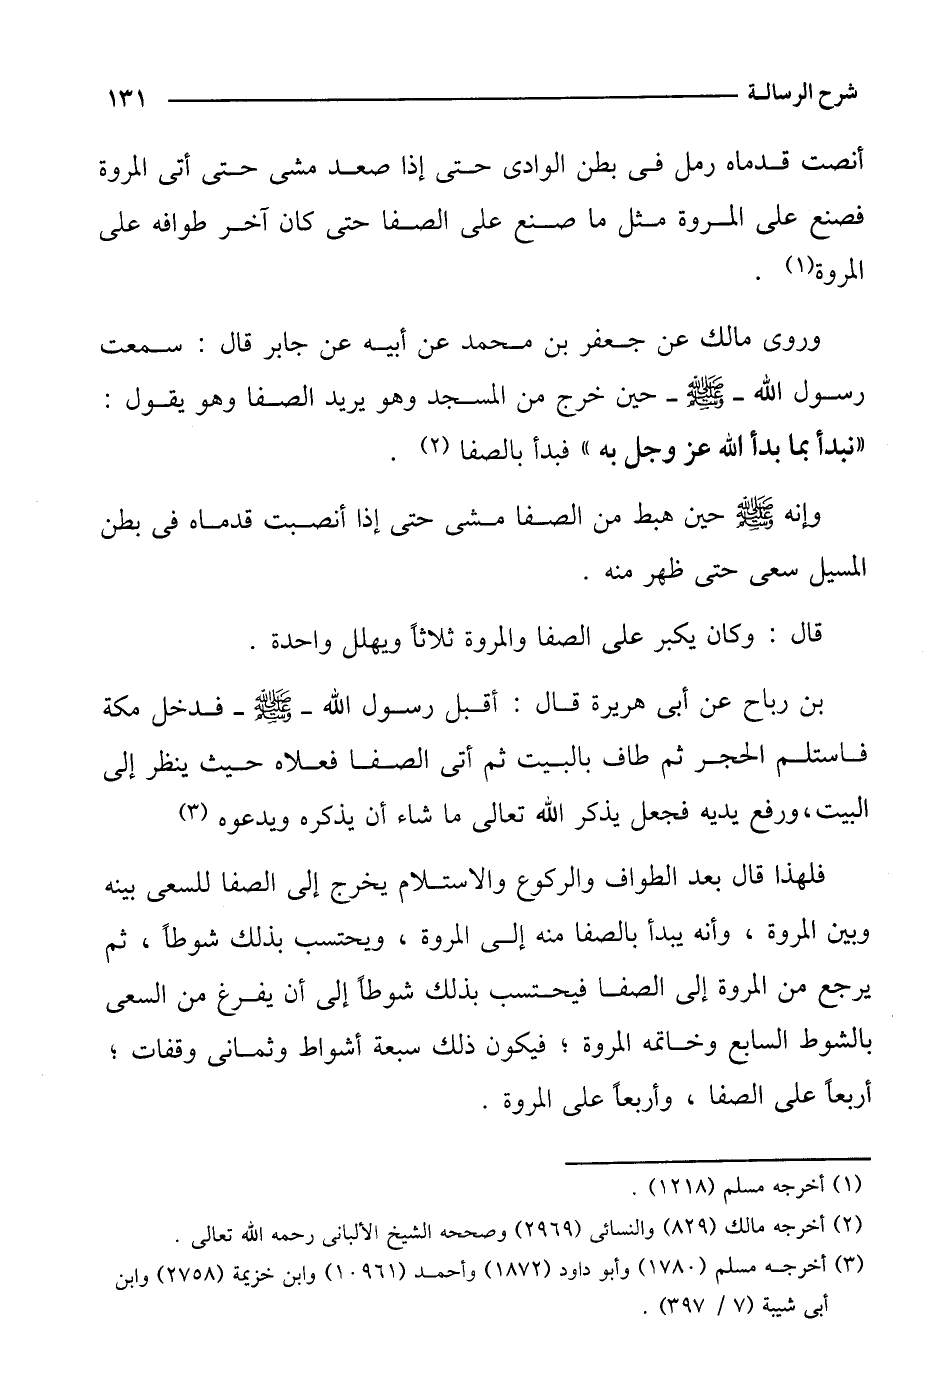 شرح الرسالة ١٣١
أنصت قدماه رمل فى بطن الوادى حتى إذا صعد مشى حتى أتى المروة
فصنع على المروة مثل ما صنع على الصفا حتى كان آخر طوافه على
المروة(١) .
وروى مالك عن جعفر بن محمد عن أبيه عن جابر قال : سمعت
رسول الله ـ ﷺ ـ حين خرج من المسجد وهو يريد الصفا وهو يقول :
«نبدأ بما بدأ الله عز وجل به » فبدأ بالصفا (٢) .
وإنه ﷺ حين هبط من الصفا مشى حتى إذا أنصبت قدماه فى بطن
المسيل سعى حتى ظهر منه .
قال : وكان يكبر على الصفا والمروة ثلاثاً ويهلل واحدة .
بن رباح عن أبى هريرة قال : أقبل رسول الله ـ ﷺ ـ فدخل مكة
فاستلم الحجر ثم طاف بالبيت ثم أتى الصفا فعلاه حيث ينظر إلى
البيت، ورفع يديه فجعل يذكر الله تعالى ما شاء أن يذكره ويدعوه (٣)
فلهذا قال بعد الطواف والركوع والاستلام يخرج إلى الصفا للسعى بينه
وبين المروة ، وأنه يبدأ بالصفا منه إلى المروة ، ويحتسب بذلك شوطاً ، ثم
يرجع من المروة إلى الصفا فيحتسب بذلك شوطاً إلى أن يفرغ من السعى
بالشوط السابع وخاتمه المروة ؛ فيكون ذلك سبعة أشواط وثمانى وقفات ؛
أربعاً على الصفا ، وأربعاً على المروة .
(١) أخرجه مسلم (١٢١٨) .
(٢) أخرجه مالك (٨٢٩) والنسائى (٢٩٦٩) وصححه الشيخ الألبانى رحمه الله تعالى .
(٣) أخرجه مسلم (١٧٨٠) وأبو داود (١٨٧٢) وأحمد (١٠٩٦١) وابن خزيمة (٢٧٥٨) وابن
أبى شيبة (٧ / ٣٩٧) .